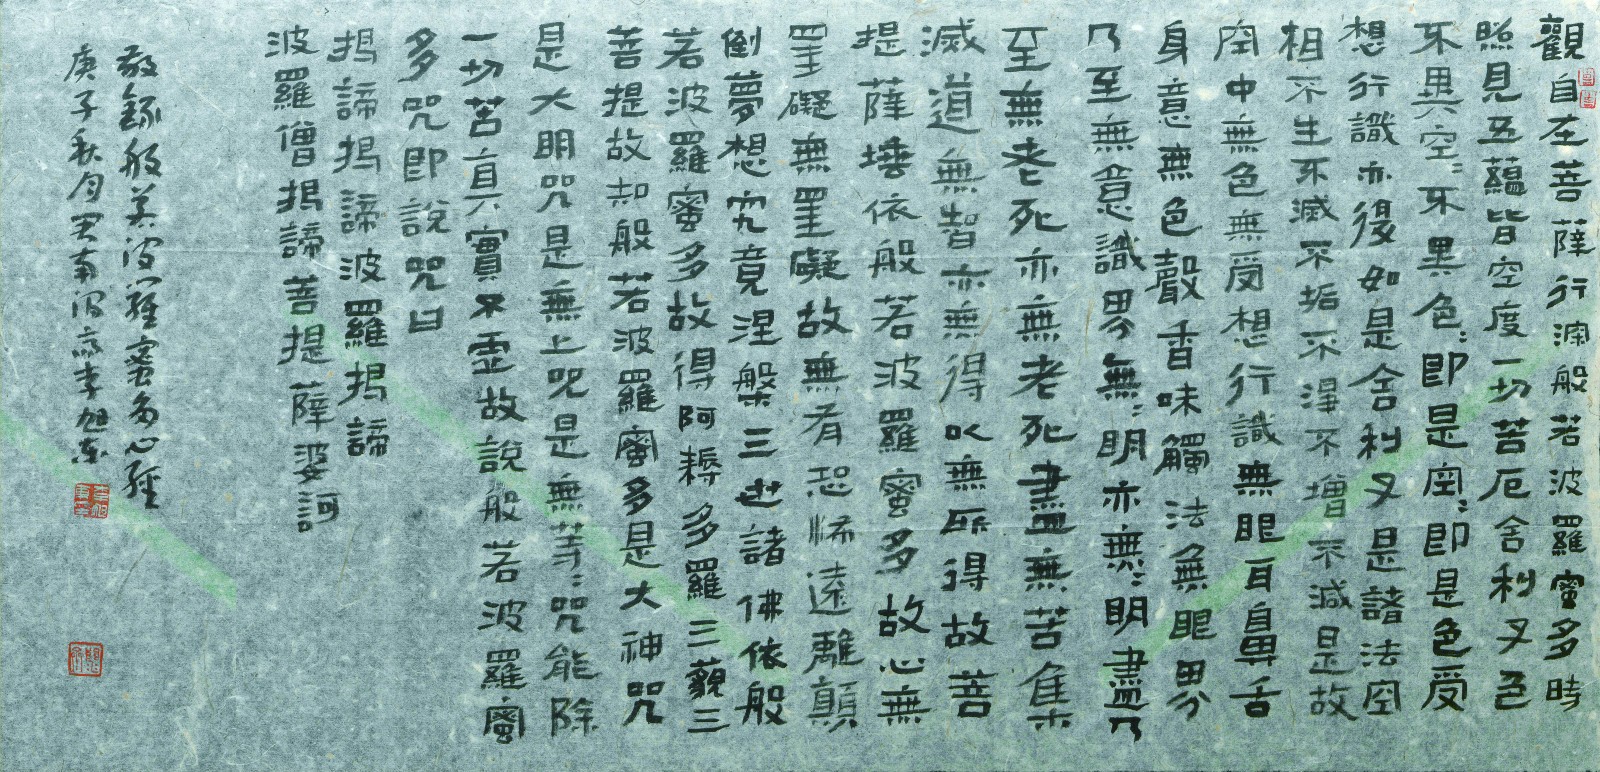 觀自在菩薩行深般若波羅蜜多時
照見五蘊皆空度一切苦厄舍利子色
不異空〻不異色〻即是空〻即是色受
想行識亦復如是舍利子是諸法空
相不生不滅不垢不淨不增不減是故
空中無色無受想行識無眼耳鼻舌
身意無色聲香味觸法無眼界
乃至無意識界無〻明亦無〻明盡乃
至無老死亦無老死盡無苦集
滅道無智亦無得以無所得故菩
提薩埵依般若波羅蜜多故心無
罣礙無罣礙故無有恐怖遠離顛
倒夢想究竟涅槃三世諸佛依般
若波羅蜜多故得阿耨多羅三藐三
菩提故知般若波羅蜜多是大神咒
是大明咒是無上咒是無等〻咒能除
一切苦真實不虛故說般若波羅蜜
多咒即說咒曰
揭諦揭諦波羅揭諦
波羅僧揭諦菩提薩婆訶
敬錄般若波羅蜜多心經
庚子秋月李旭東